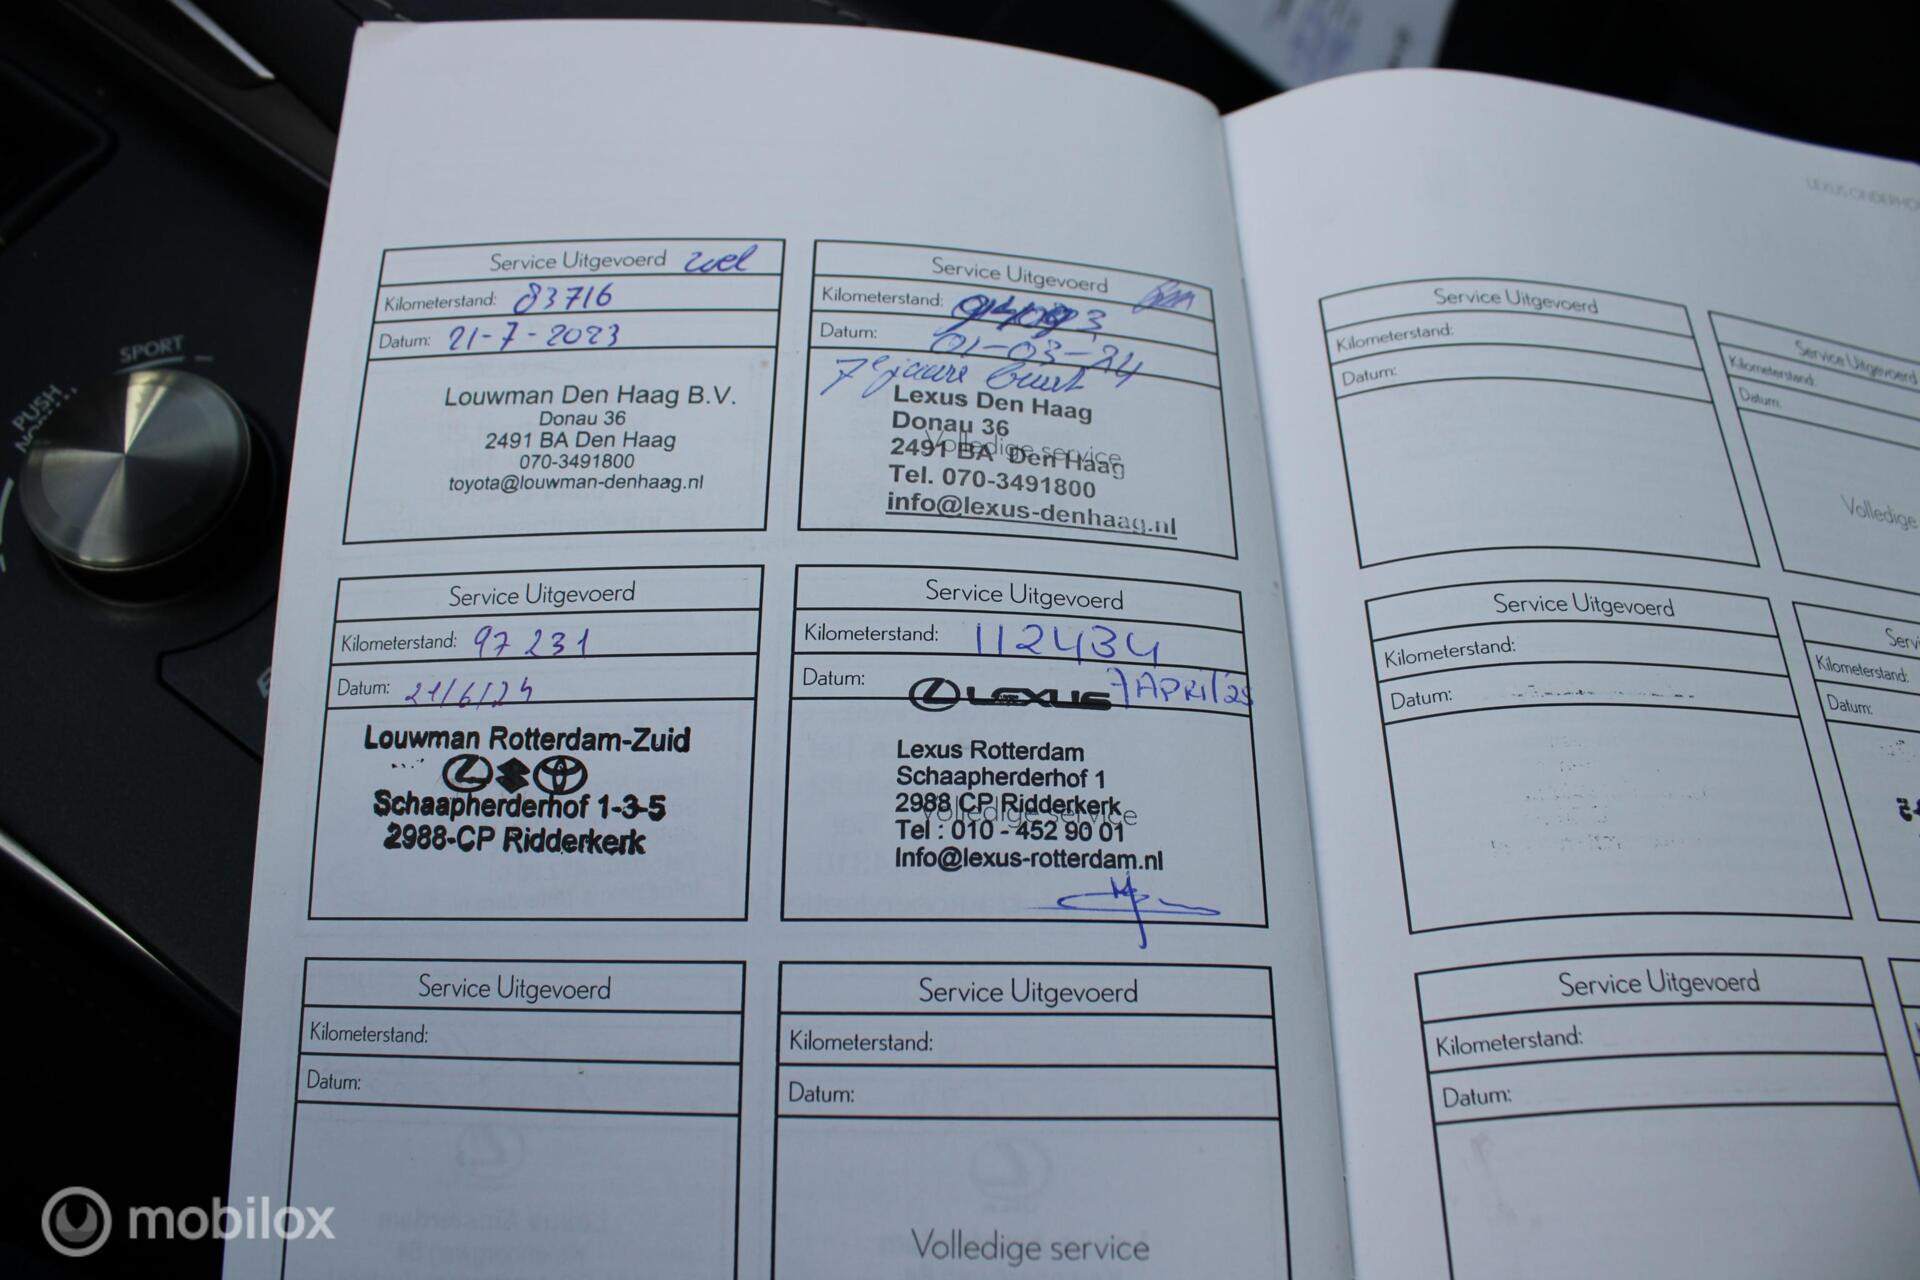 SPORT
PUSH
LEXUS ONDERHO
Service Uitgevoerd
Kilometerstand: 83716
Datum: 21-7-2023
Louwman Den Haag B.V.
Donau 36
2491 BA Den Haag
070-3491800
toyota@louwman-denhaag.nl
Service Uitgevoerd
Kilometerstand:
Datum: 01-03-24
7e jaars beurt
Lexus Den Haag
Donau 36
Volledige service
2491 BA Den Haag
Tel. 070-3491800
info@lexus-denhaag.nl
Service Uitgevoerd
Kilometerstand: 97231
Datum: 21/6/24
Louwman Rotterdam-Zuid
Schaapherderhof 1-3-5
2988-CP Ridderkerk
Service Uitgevoerd
Kilometerstand: 112434
Datum: 7 APRIL'25
LEXUS
Lexus Rotterdam
Schaapherderhof 1
2988 CP Ridderkerk
Volledige service
Tel : 010 - 452 90 01
Info@lexus-rotterdam.nl
Service Uitgevoerd
Kilometerstand:
Datum:
Service Uitgevoerd
Kilometerstand:
Datum:
Volledige service
Service Uitgevoerd
Kilometerstand:
Datum:
Service Uitgevoerd
Kilometerstand:
Datum:
Volledige
Service Uitgevoerd
Kilometerstand:
Datum:
Servi
Kilometerstand:
Datum:
Service Uitgevoerd
Kilometerstand:
Datum:
mobilox